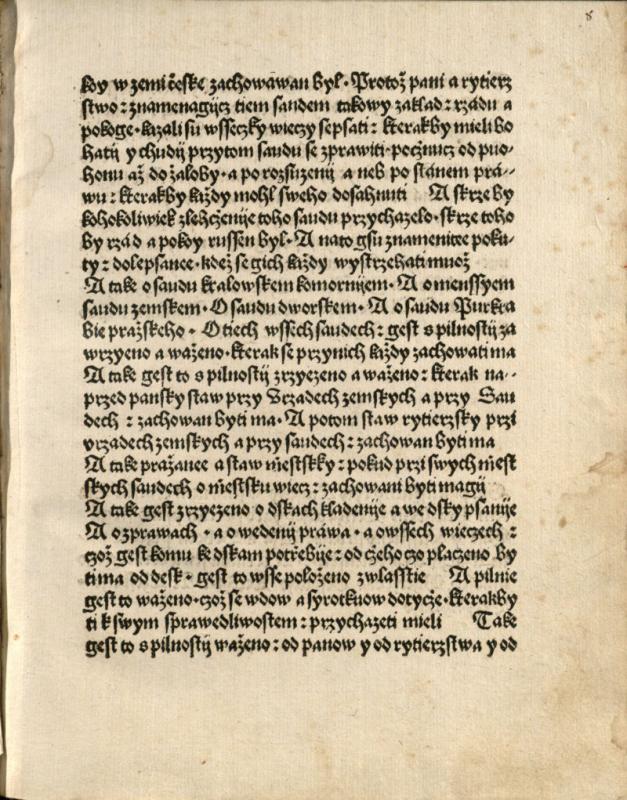 8
koy w zemi čeſke zachowawan byl · Protož pani a rytierz
ſtwo : znamenagijcz tiem ſaudem takowy zaklad : rzadu a
pokoge · kazali ſu wſſeczky wieczy ſepſati : kterakby mieli bo
hatij y chudij przytom ſaudu ſe zprawiti · počznucz od puo-
honu až do žaloby · a po rozſuzenij a neb po ſtanem pra-
wu : kterakby každy mohl ſweho doſahnuti A ſkrze by
kohokoliwiek zlehczenije toho ſaudu przychazelo · ſkrze toho
by rzad a pokoy ruſſen byl · A nato gſu znamenitee poku-
ty : dolepſanee · kdež ſe gich každy wyſtrzehati muož
A take o ſaudu kralowſkem komornijem · A o menſſyem
ſaudu zemſkem · O ſaudu dworſkem · A o ſaudu Purkra
bie pražſkeho · O tiech wſſech ſaudech : geſt s pilnoſtij za
wrzyeno a waženo · kterak ſe przynich každy zachowati ma
A take geſt to s pilnoſtij zrzyezeno a waženo : kterak na-
przed panſky ſtaw przy Vrzadech zemſkych a przy Sau
dech : zachowan byti ma · A potom ſtaw rytierzſky przi
vrzadech zemſkych a przy ſaudech : zachowan byti ma
A take pražanee a ſtaw mieſtſky : pokud przi ſwych mieſt
ſkych ſaudech o mieſtſku wiecz : zachowani byti magij
A take geſt zrzyezeno o dſkach kladenije a we dſky pſanije
A o zprawach · a o wedenij prawa · a o wſſech wieczech :
czož geſt komu ke dſkam potřebije : od čzeho czo placzeno by
ti ma od deſk · geſt to wſſe položeno zwlaſſtie A pilnie
geſt to waženo · czož ſe wdow a ſyrotkuow dotycže · kterakby
ti k ſwym ſprawedliwoſtem : przychazeti mieli Take
geſt to s pilnoſtij waženo : od panow y od rytierzſtwa y od